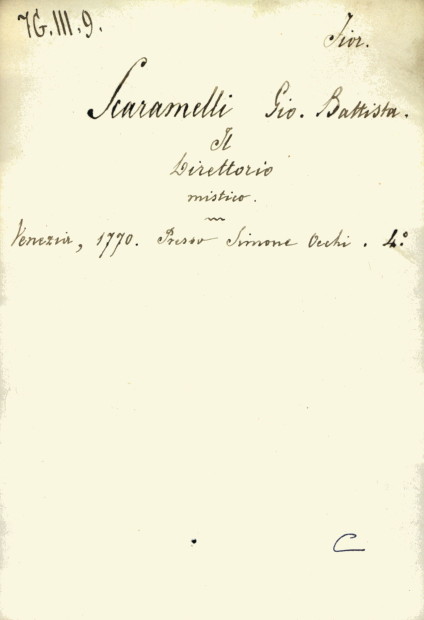 7G.III.9.
Fior.
Scaramelli Gio. Battista.
Il
Direttorio
mistico.
Venezia, 1770. Presso Simone Occhi. 4.°
C